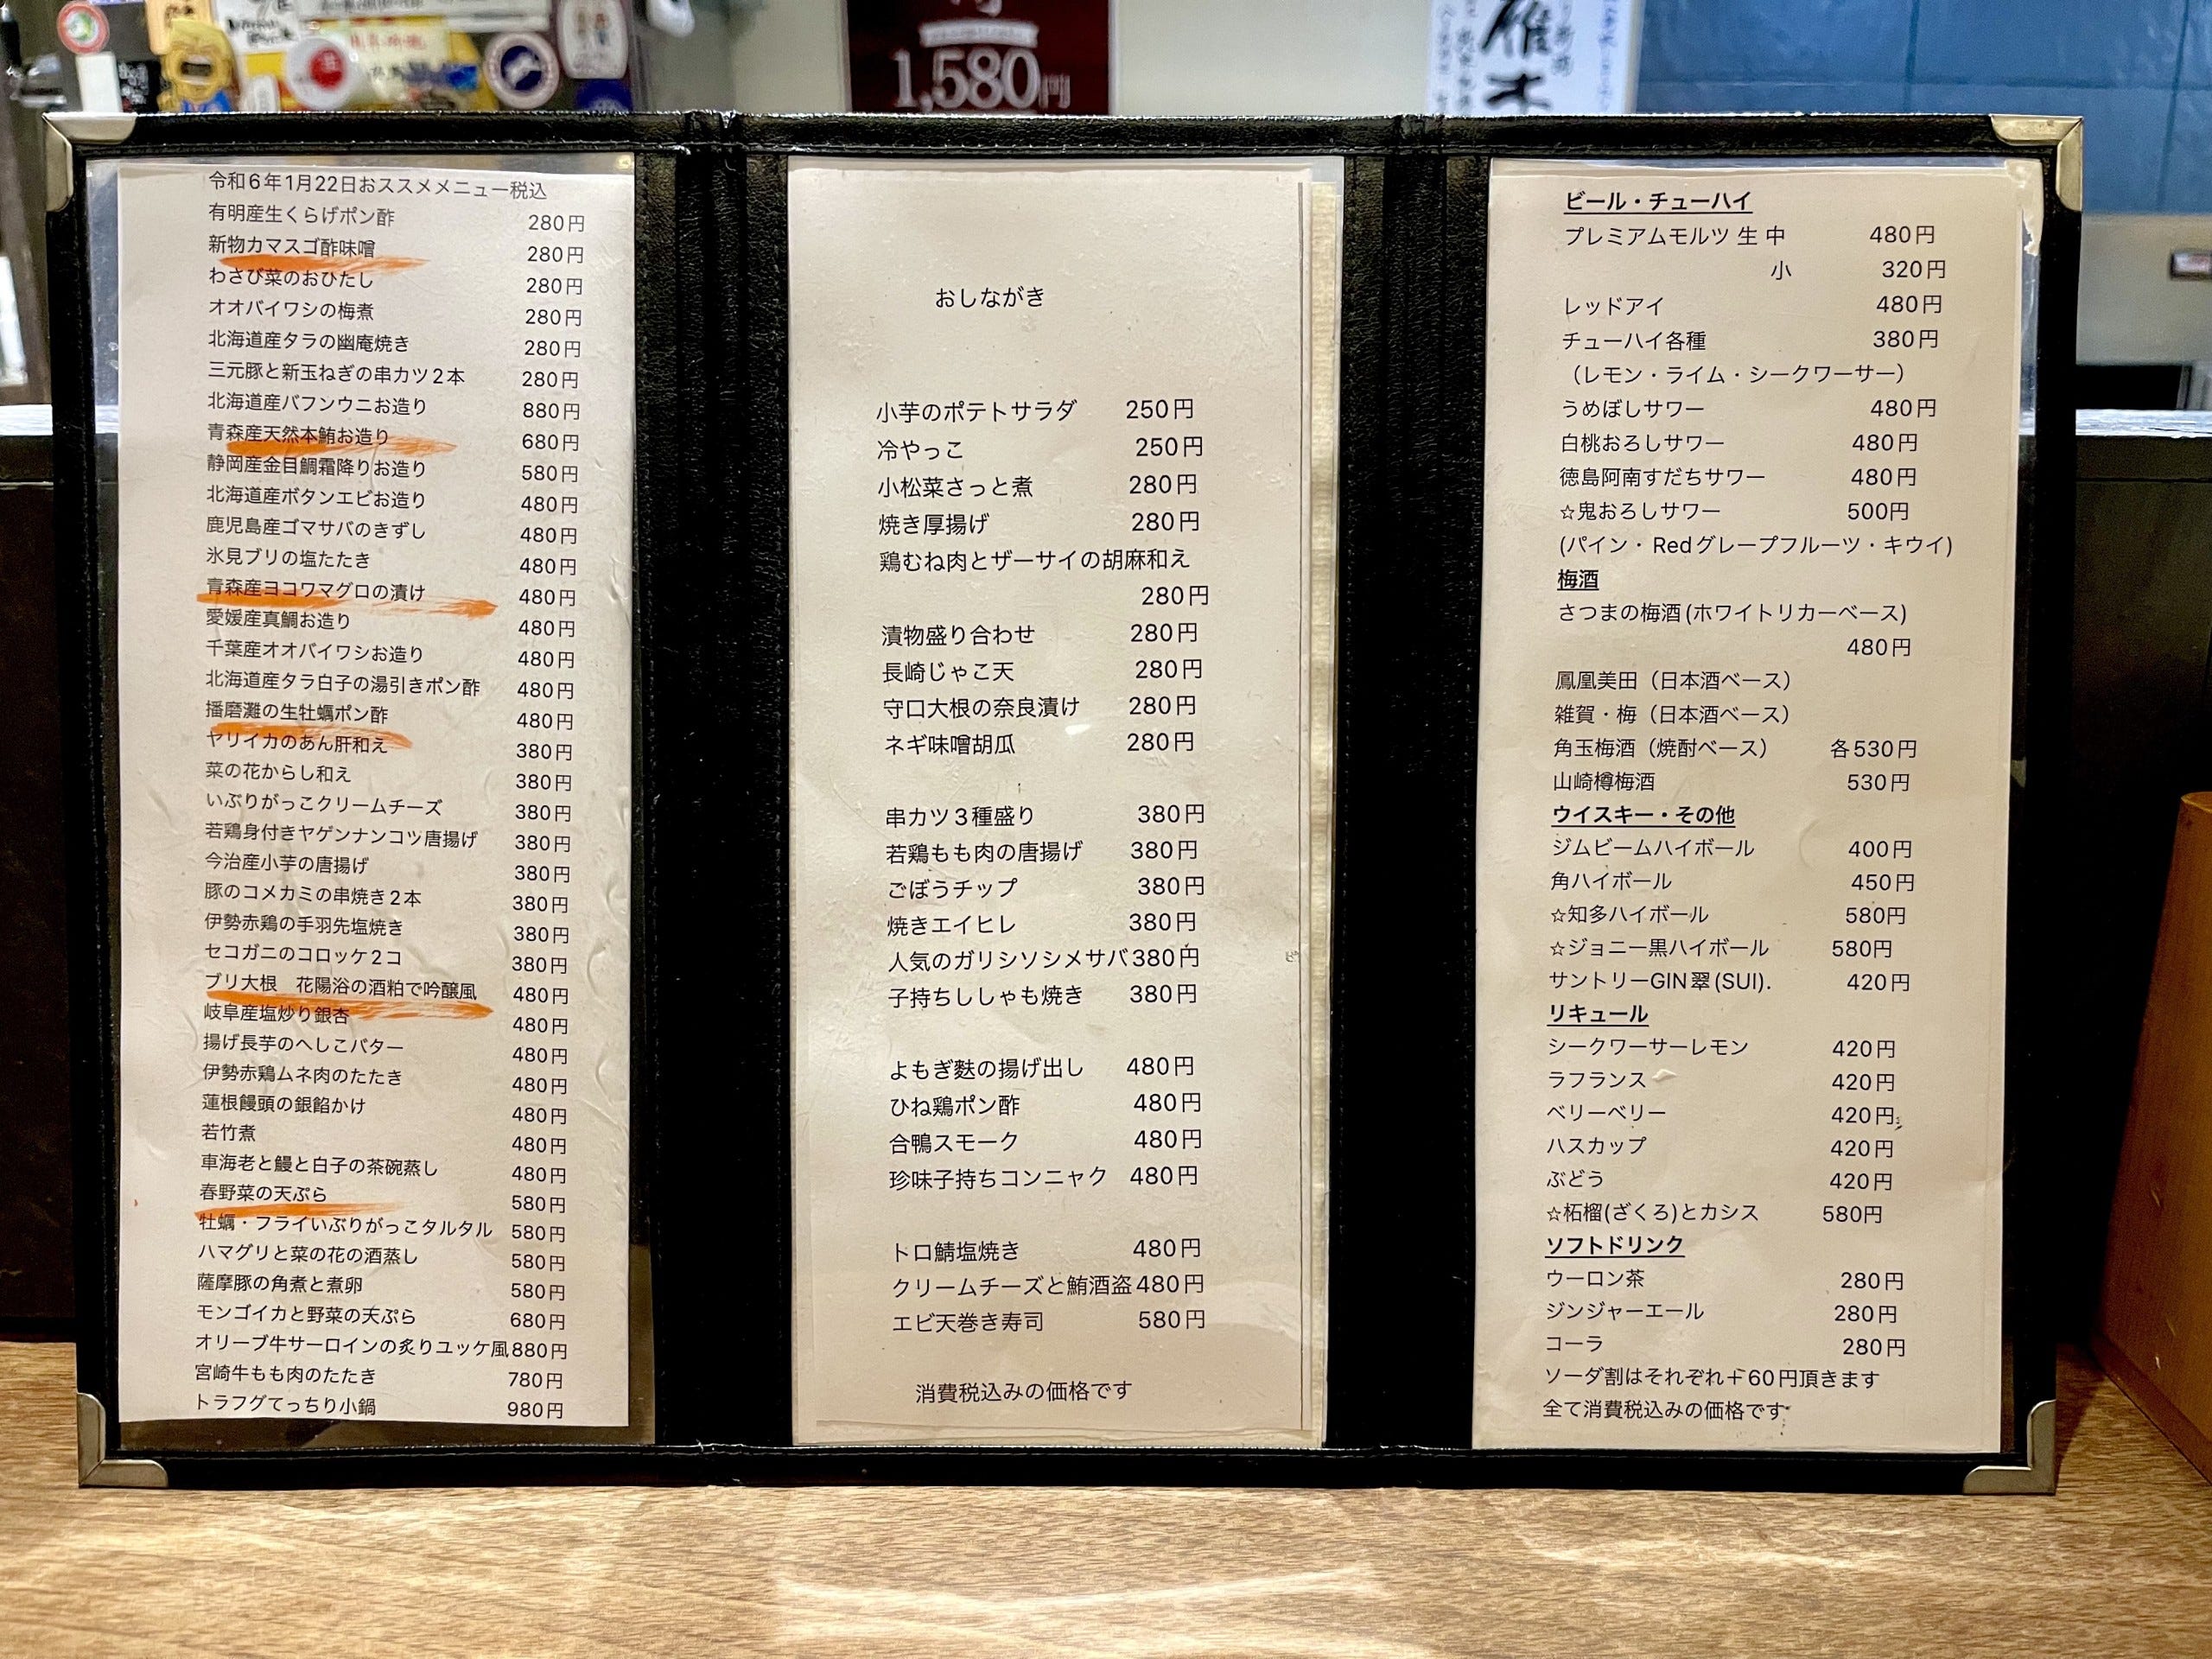 1,580円
雁木
令和6年1月22日おススメメニュー税込
有明産生くらげポン酢 280円
新物カマスゴ酢味噌 280円
わさび菜のおひたし 280円
オオバイワシの梅煮 280円
北海道産タラの幽庵焼き 280円
三元豚と新玉ねぎの串カツ2本 280円
北海道産バフンウニお造り 880円
青森産天然本鮪お造り 680円
静岡産金目鯛霜降りお造り 580円
北海道産ボタンエビお造り 480円
鹿児島産ゴマサバのきずし 480円
氷見ブリの塩たたき 480円
青森産ヨコワマグロの漬け 480円
愛媛産真鯛お造り 480円
千葉産オオバイワシお造り 480円
北海道産タラ白子の湯引きポン酢 480円
播磨灘の生牡蠣ポン酢 480円
ヤリイカのあん肝和え 380円
菜の花からし和え 380円
いぶりがっこクリームチーズ 380円
若鶏身付きヤゲンナンコツ唐揚げ 380円
今治産小芋の唐揚げ 380円
豚のコメカミの串焼き2本 380円
伊勢赤鶏の手羽先塩焼き 380円
セコガニのコロッケ2コ 380円
ブリ大根 花陽浴の酒粕で吟醸風 480円
岐阜産塩炒り銀杏 480円
揚げ長芋のへしこバター 480円
伊勢赤鶏ムネ肉のたたき 480円
蓮根饅頭の銀餡かけ 480円
若竹煮 480円
車海老と鰻と白子の茶碗蒸し 480円
春野菜の天ぷら 580円
牡蠣・フライいぶりがっこタルタル 580円
ハマグリと菜の花の酒蒸し 580円
薩摩豚の角煮と煮卵 580円
モンゴイカと野菜の天ぷら 680円
オリーブ牛サーロインの炙りユッケ風 880円
宮崎牛もも肉のたたき 780円
トラフグてっちり小鍋 980円
おしながき
小芋のポテトサラダ 250円
冷やっこ 250円
小松菜さっと煮 280円
焼き厚揚げ 280円
鶏むね肉とザーサイの胡麻和え
280円
漬物盛り合わせ 280円
長崎じゃこ天 280円
守口大根の奈良漬け 280円
ネギ味噌胡瓜 280円
串カツ3種盛り 380円
若鶏もも肉の唐揚げ 380円
ごぼうチップ 380円
焼きエイヒレ 380円
人気のガリシソシメサバ 380円
子持ちししゃも焼き 380円
よもぎ麩の揚げ出し 480円
ひね鶏ポン酢 480円
合鴨スモーク 480円
珍味子持ちコンニャク 480円
トロ鯖塩焼き 480円
クリームチーズと鮪酒盗 480円
エビ天巻き寿司 580円
消費税込みの価格です
ビール・チューハイ
プレミアムモルツ 生 中 480円
小 320円
レッドアイ 480円
チューハイ各種 380円
（レモン・ライム・シークワーサー）
うめぼしサワー 480円
白桃おろしサワー 480円
徳島阿南すだちサワー 480円
☆鬼おろしサワー 500円
(パイン・Redグレープフルーツ・キウイ)
梅酒
さつまの梅酒(ホワイトリカーベース)
480円
鳳凰美田（日本酒ベース）
雑賀・梅（日本酒ベース）
角玉梅酒（焼酎ベース） 各530円
山崎樽梅酒 530円
ウイスキー・その他
ジムビームハイボール 400円
角ハイボール 450円
☆知多ハイボール 580円
☆ジョニー黒ハイボール 580円
サントリーGIN翠(SUI). 420円
リキュール
シークワーサーレモン 420円
ラフランス 420円
ベリーベリー 420円
ハスカップ 420円
ぶどう 420円
☆柘榴(ざくろ)とカシス 580円
ソフトドリンク
ウーロン茶 280円
ジンジャーエール 280円
コーラ 280円
ソーダ割はそれぞれ＋60円頂きます
全て消費税込みの価格です